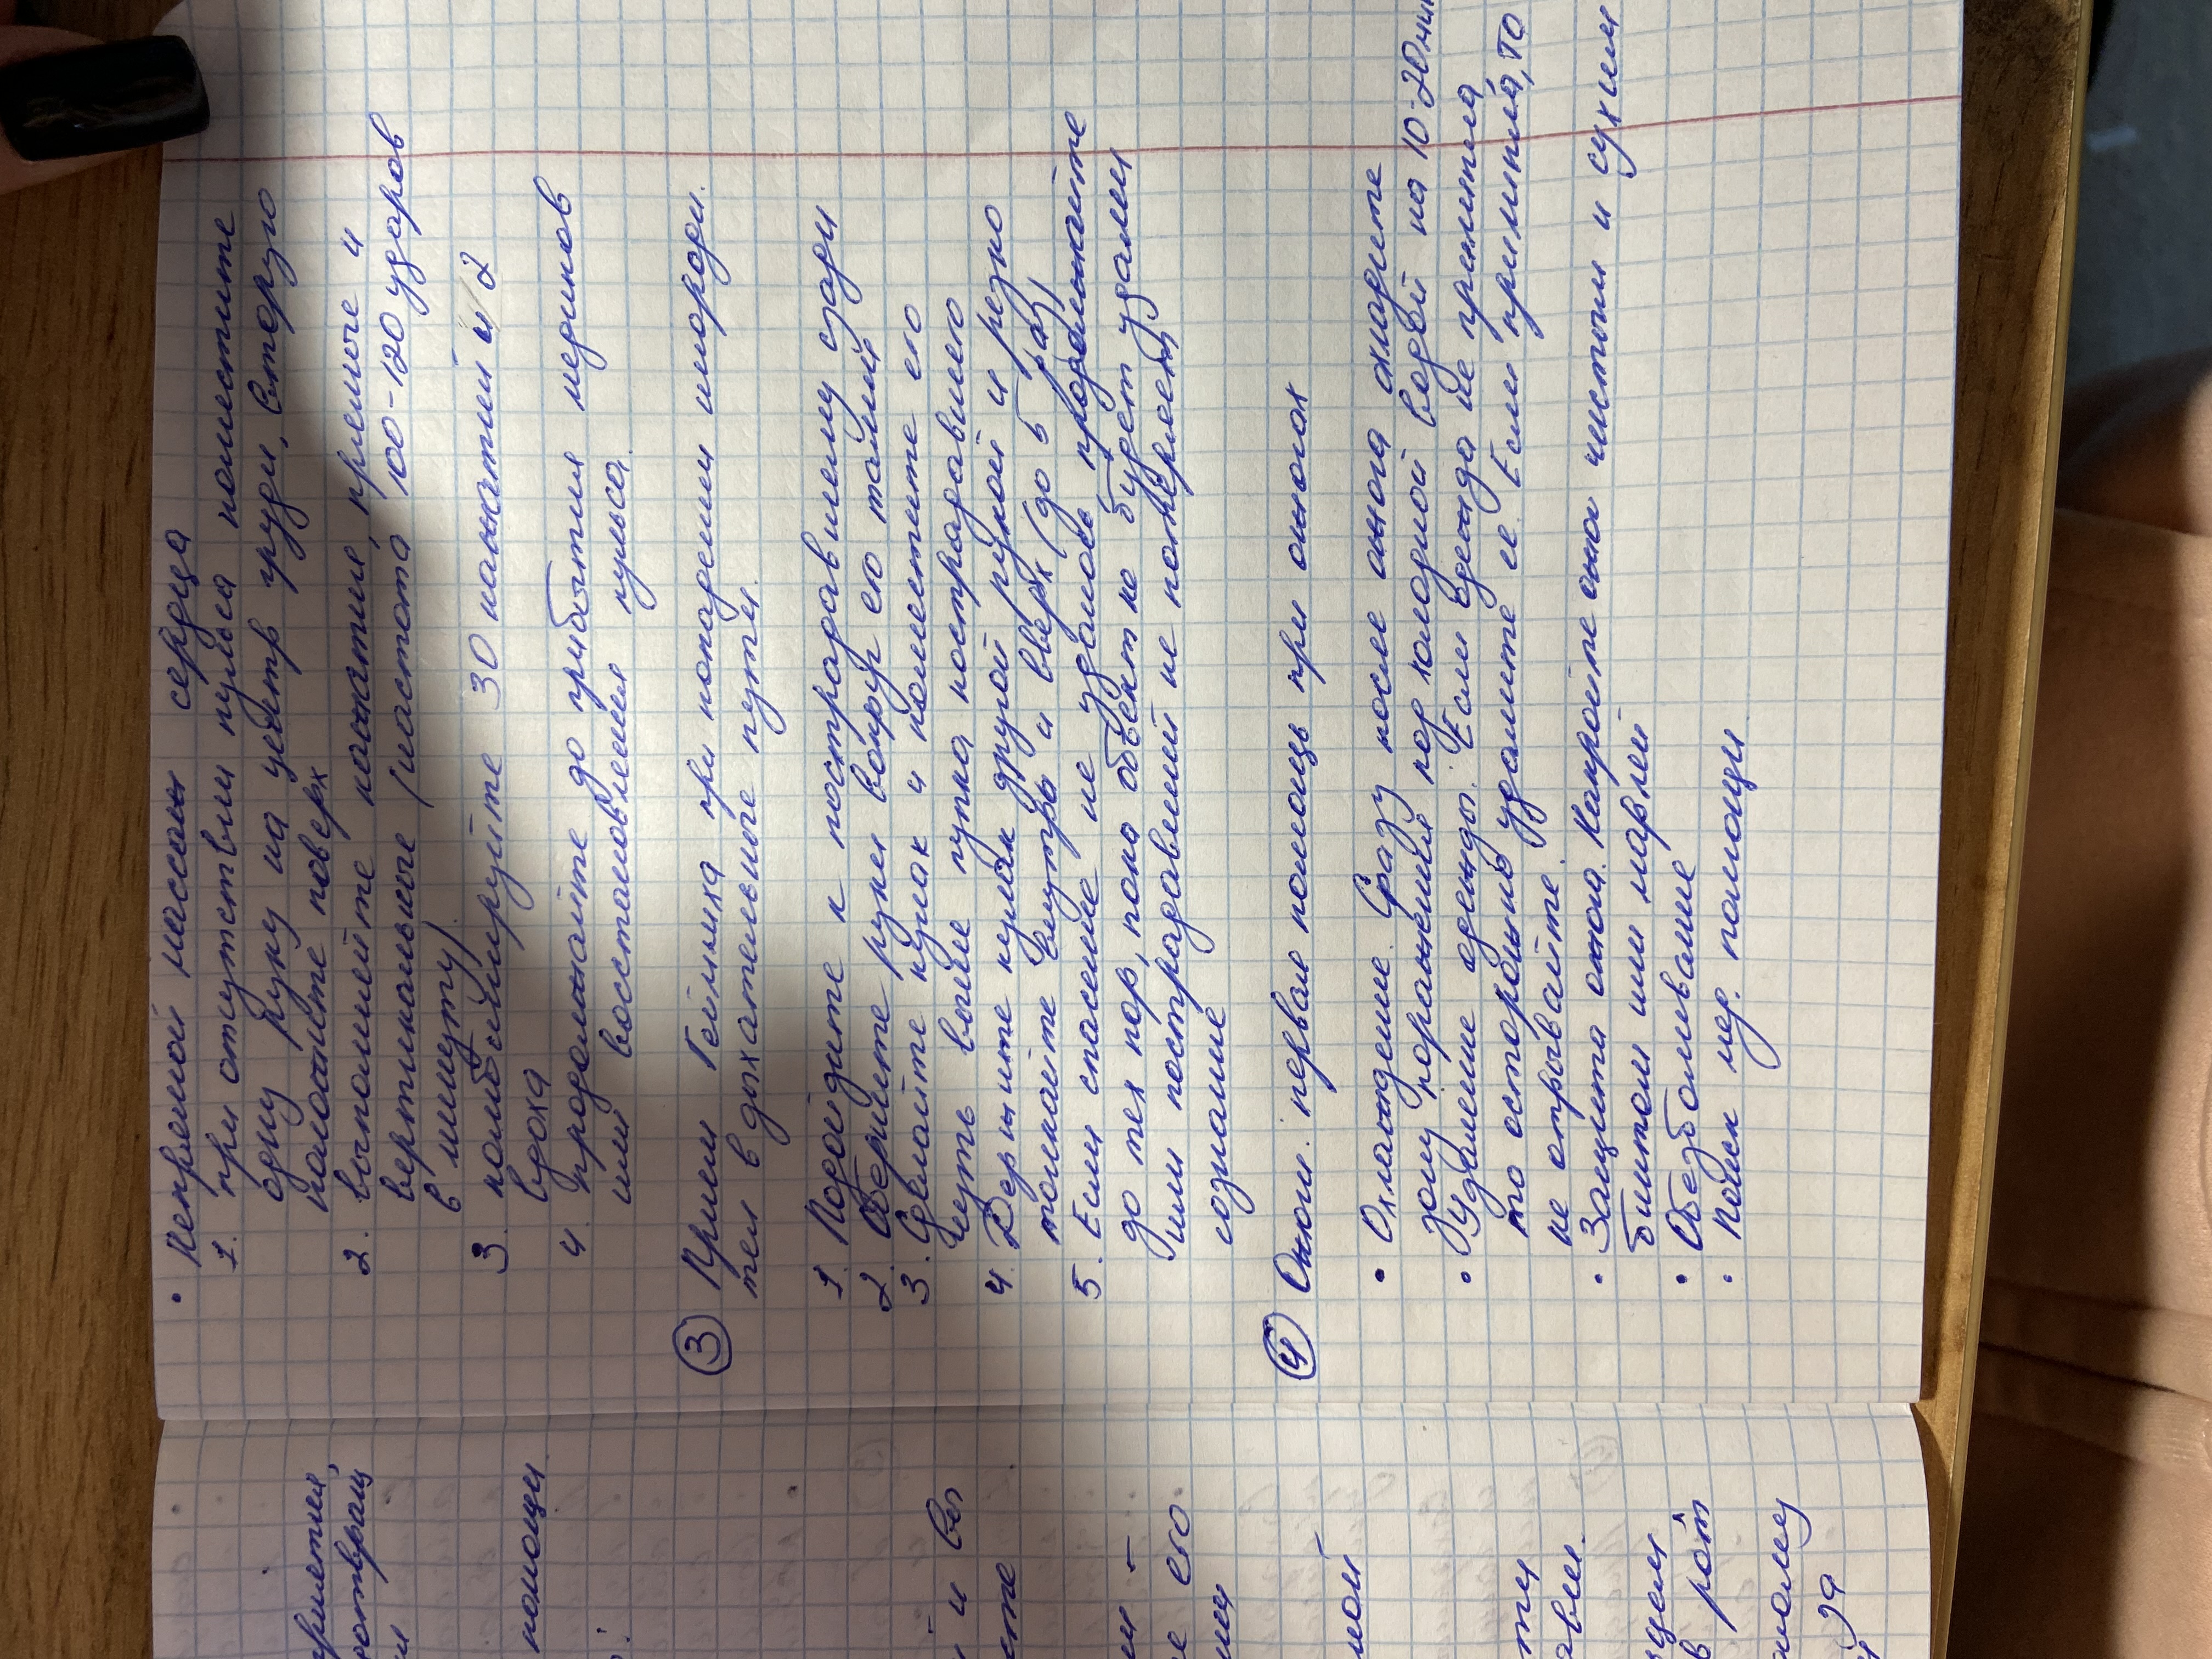 • Непрямой массаж сердца
1. при отсутствии пульса поместите
одну руку на центр груди, вторую
положите поверх
2. выполняйте нажатия, прямые и
вертикальные (частота 100-120 ударов
в минуту)
3. комбинируйте 30 нажатий и 2
вдоха
4. продолжайте до прибытия медиков
или восстановления пульса.
③ Прием Геймлиха при попадании инородн.
тел в дыхательные пути.
1. Подойдите к пострадавшему сзади
2. Оберните руки вокруг его талии
3. Сделайте кулак и поместите его
чуть выше пупка пострадавшего
4. Держите кулак другой рукой и резко
толкайте внутрь и вверх (до 5 раз)
5. Если спасение не удалось, продолжайте
до тех пор, пока объект не будет удален
или пострадавший не потеряет
сознание
④ Ожоги: первая помощь при ожогах
• Охлаждение. Сразу после ожога охладите
зону поражения под холодной водой на 10-20мин
• Удаление одежды. Если одежда не прилипла,
то осторожно удалите ее. Если прилипла, то
не отрывайте.
• Защита ожога. Накройте ожог чистым и сухим
бинтом или марлей
• Обезболивание
• Поиск мед. помощи
помощи
и вы
его
рот